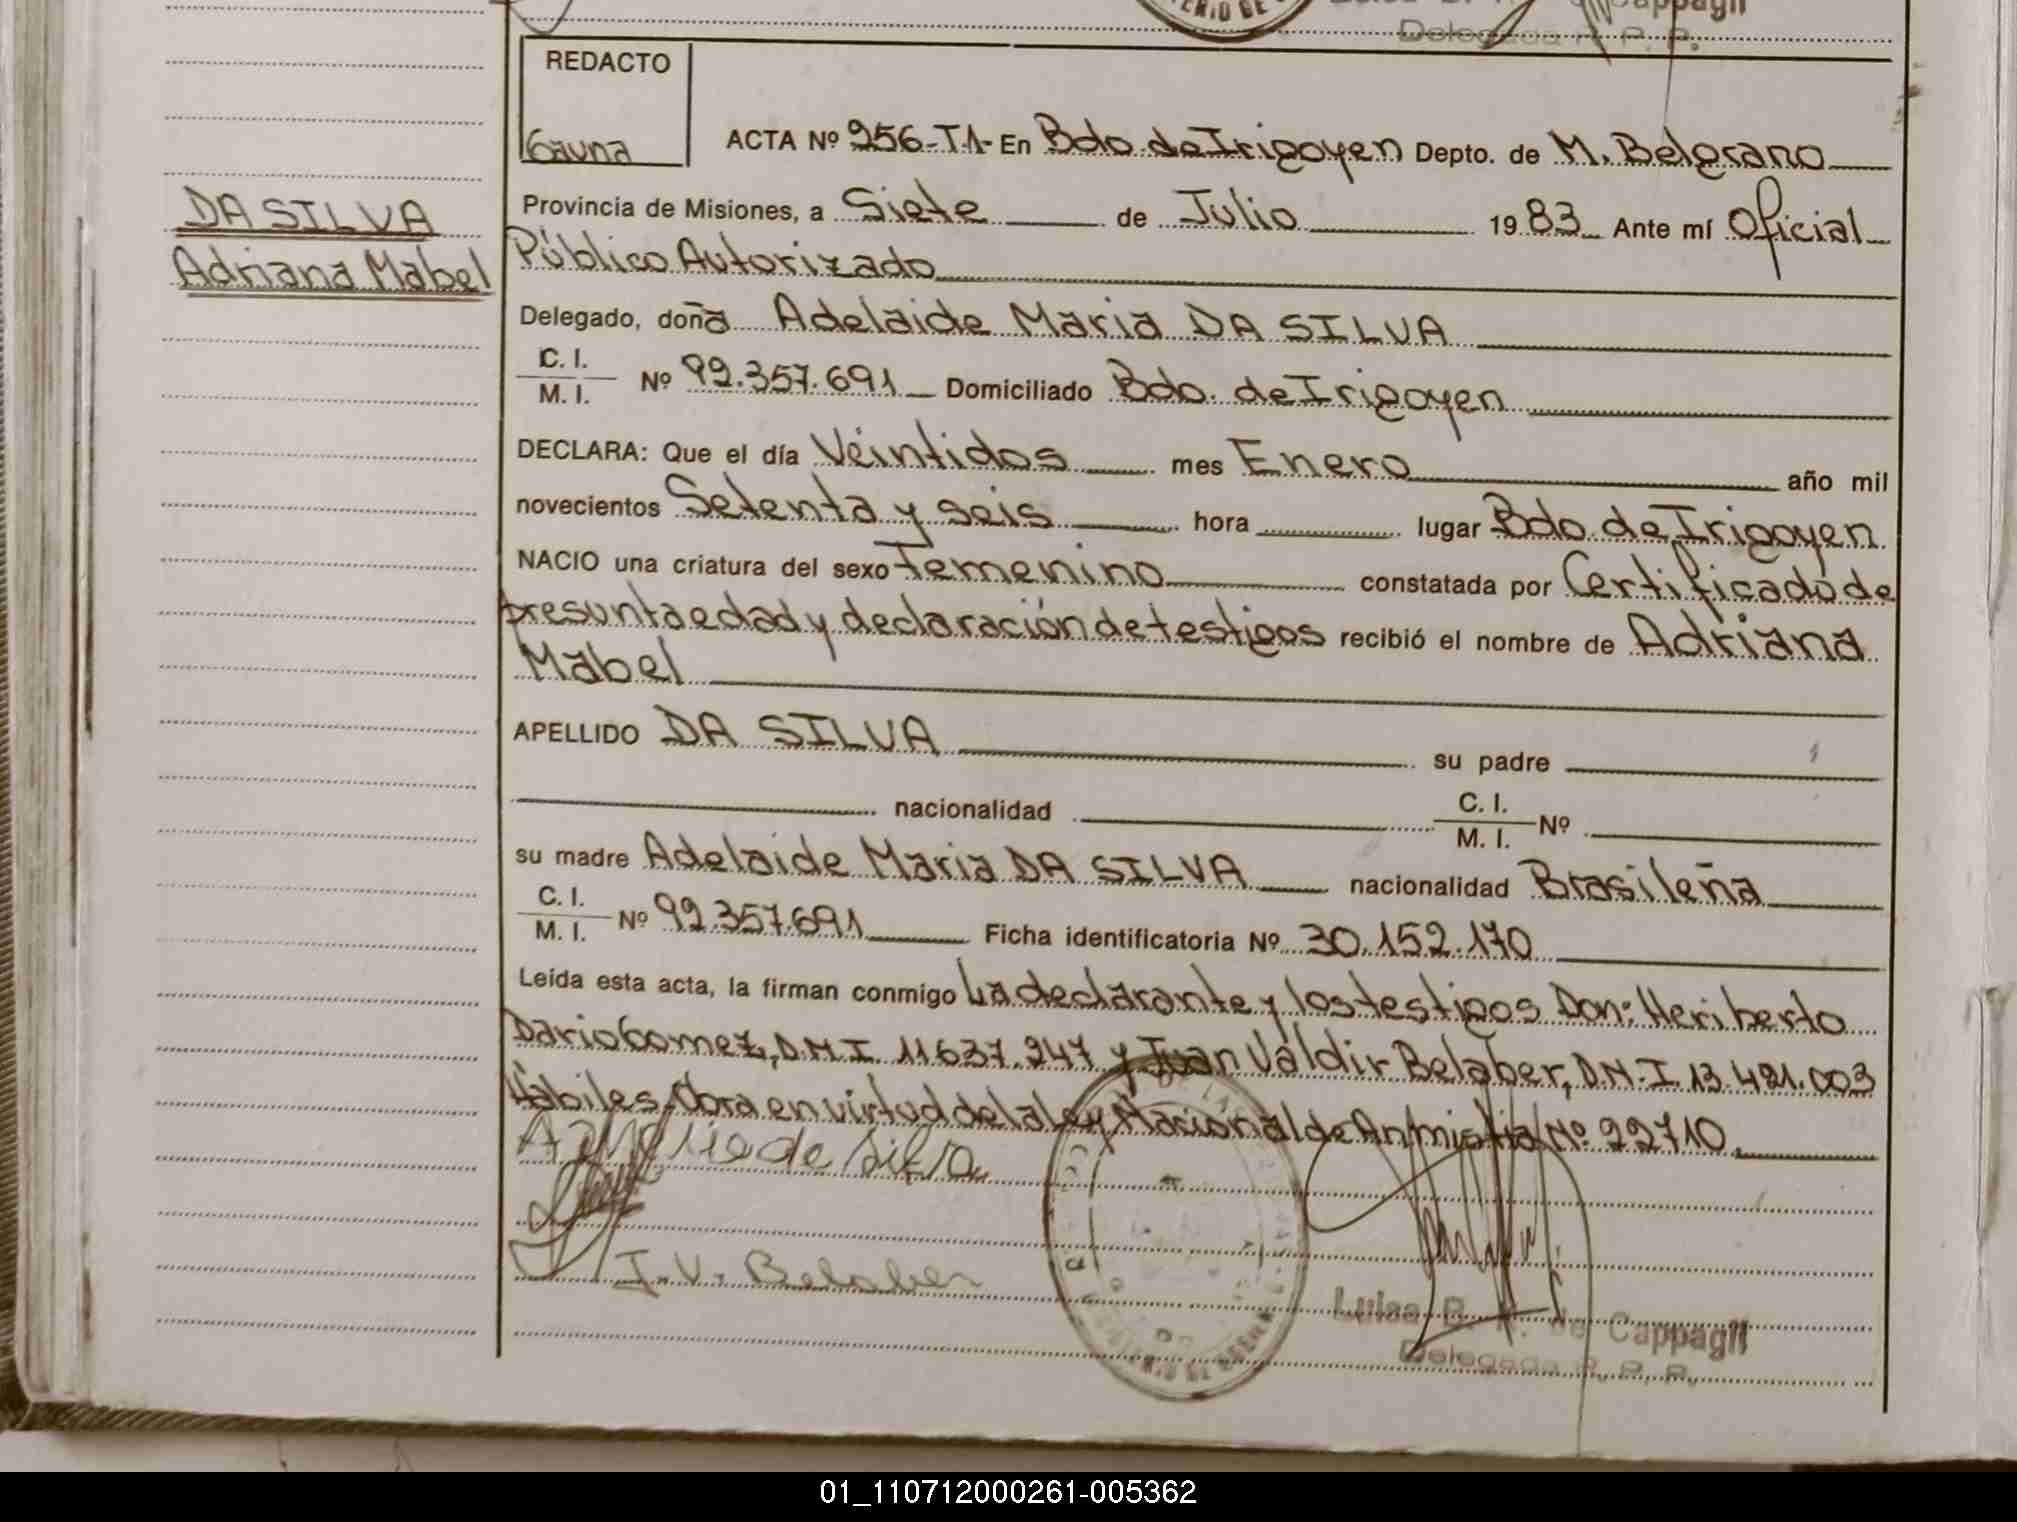 Delegada R. P. P.
REDACTO
Gauna
DA SILVA
Adriana Mabel
ACTA Nº 956-T1- En Bdo. de Irigoyen Depto. de M. Belgrano
Provincia de Misiones, a Siete de Julio 1983 Ante mí Oficial
Público Autorizado
Delegado, doña Adelaide Maria DA SILVA
C. I.
M. I. Nº 92.357.691 Domiciliado Bdo. de Irigoyen
DECLARA: Que el día Veintidos mes Enero año mil
novecientos Setenta y seis hora lugar Bdo. de Irigoyen
NACIO una criatura del sexo Femenino constatada por Certificado de
presunta edad y declaración de testigos recibió el nombre de Adriana
Mabel
APELLIDO DA SILVA su padre
nacionalidad C. I.
M. I. Nº
su madre Adelaide Maria DA SILVA nacionalidad Brasileña
C. I.
M. I. Nº 92.357.691 Ficha identificatoria Nº 30.152.170
Leída esta acta, la firman conmigo La declarante y los testigos Don: Heriberto
Dario Gomez, D.N.I. 11637.247 y Juan Valdir Belaber, D.N.I. 13.421.003
Hábiles, Obra en virtud de la ley Nacional de Anmistia Nº 22710
de Silva
J. V. Belaber
Luisa de Cappagli
Delegada R. P. P.
01_110712000261-005362